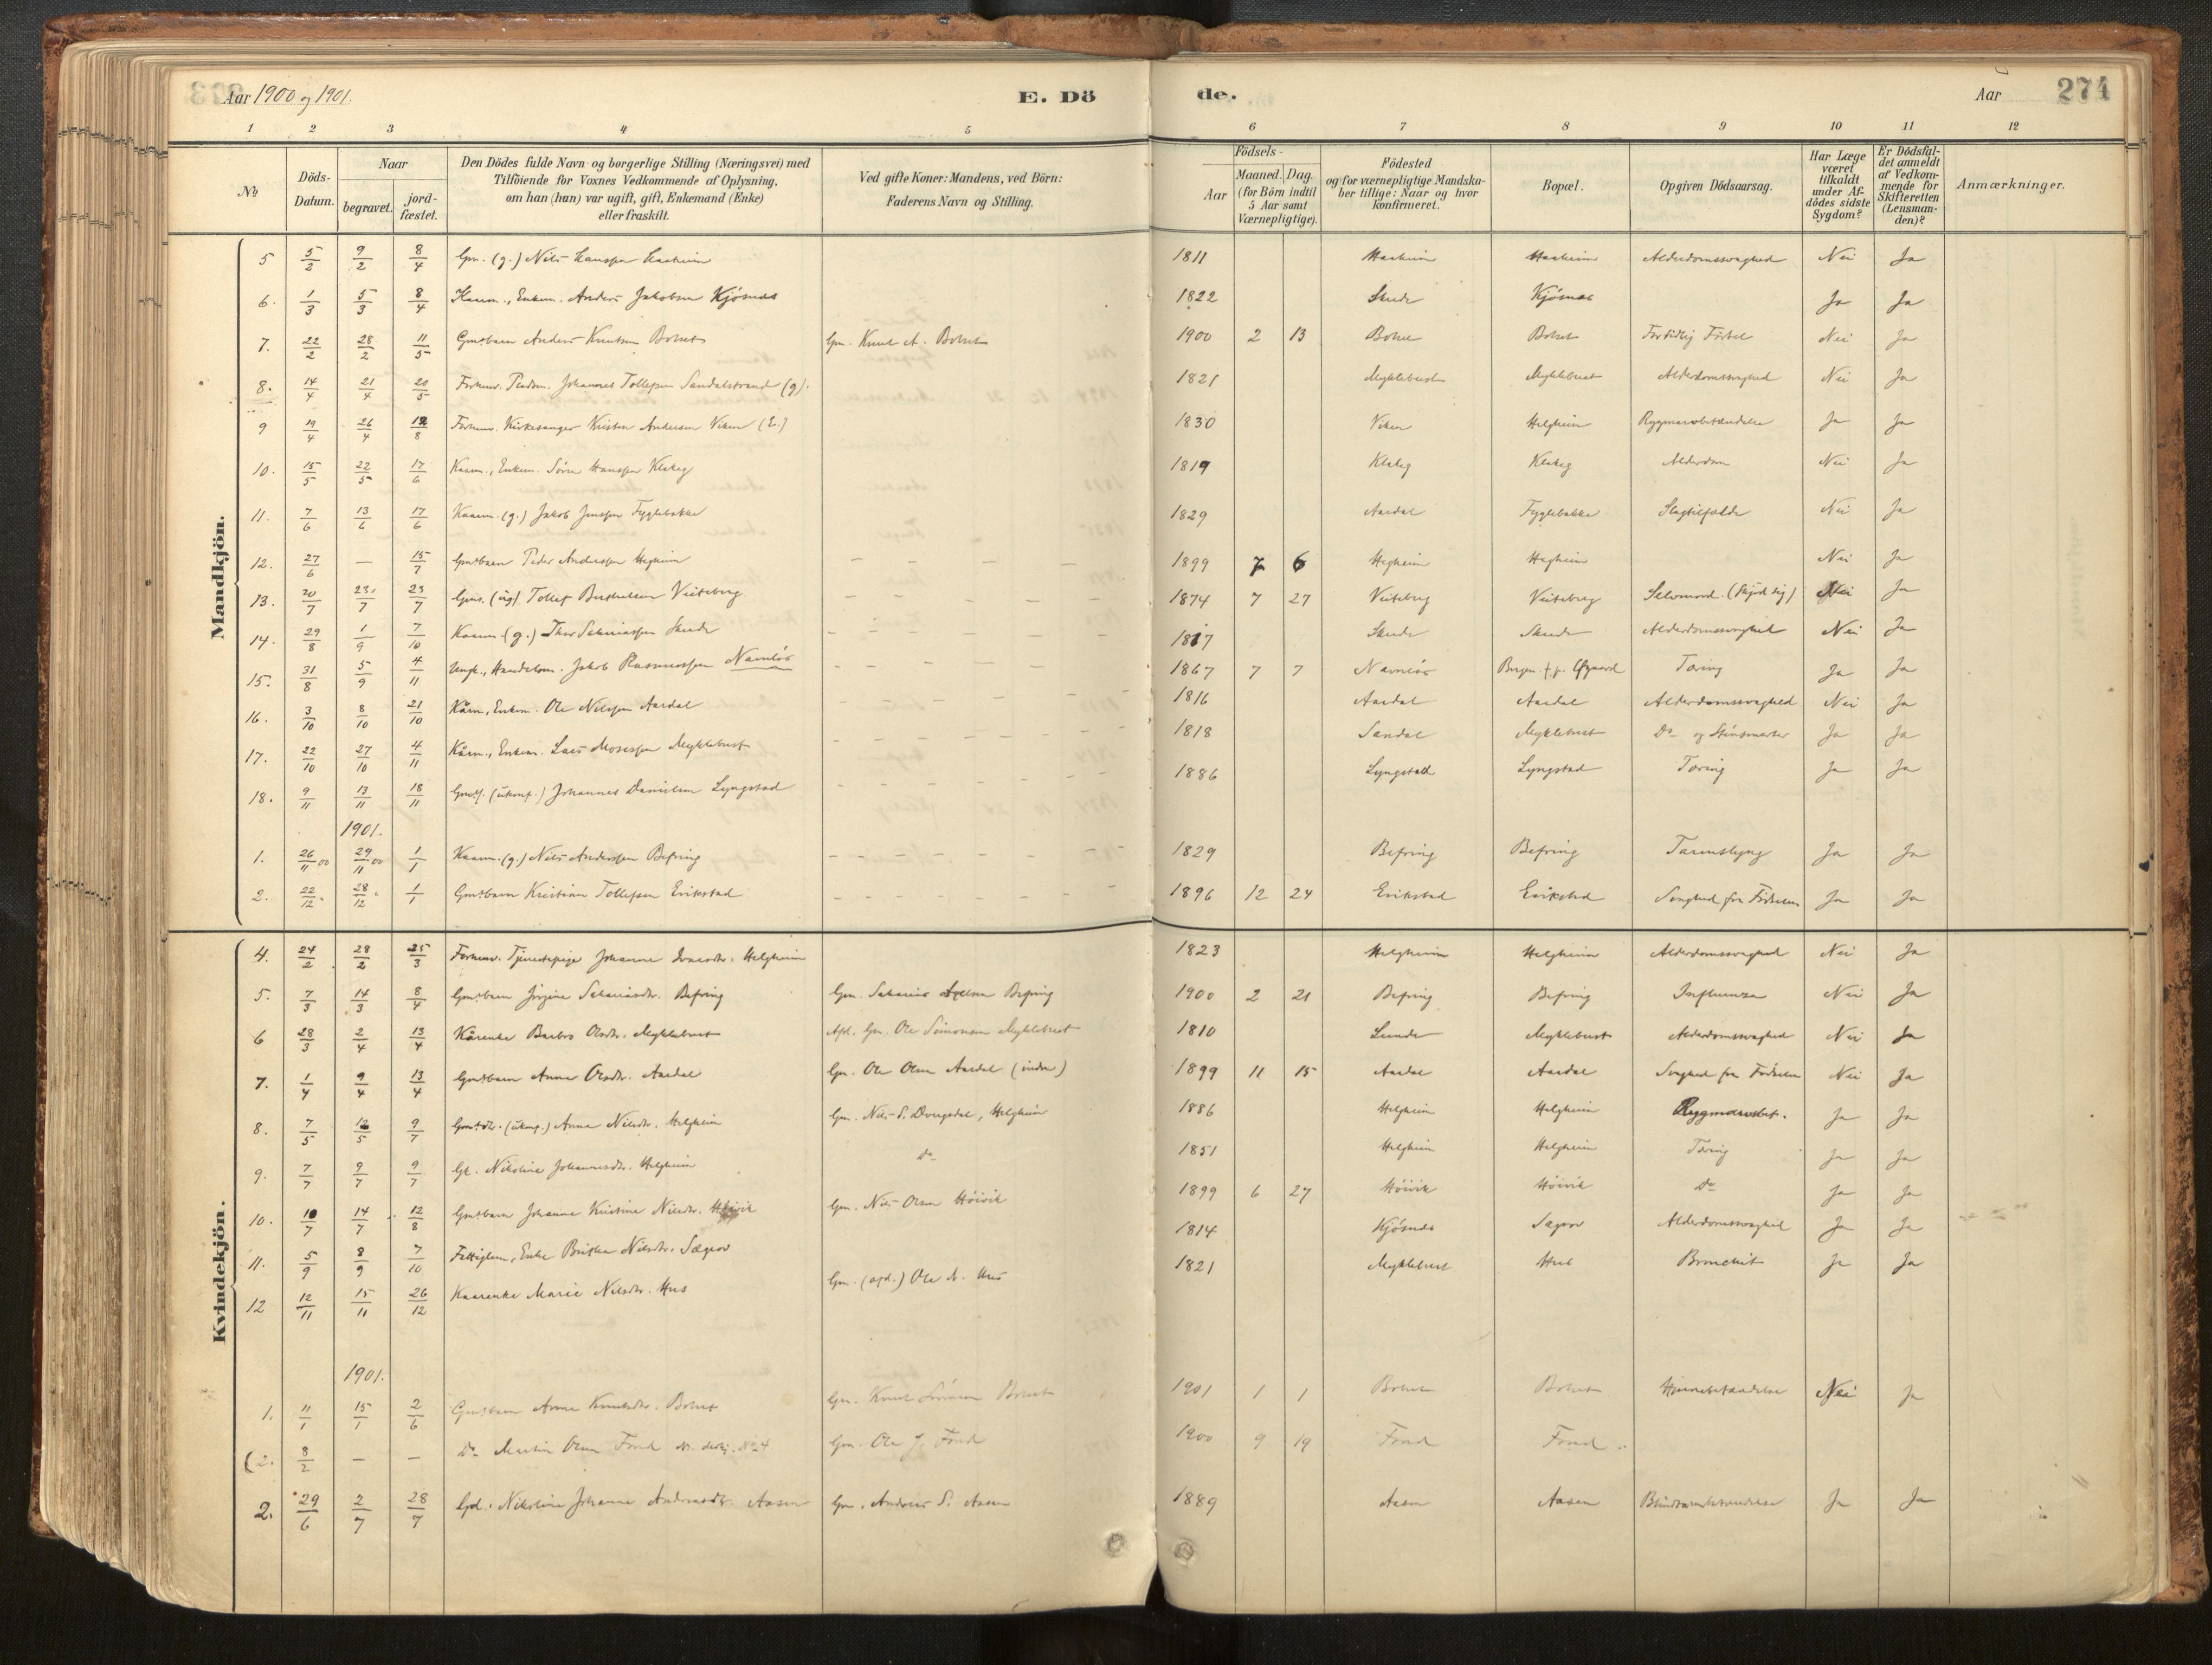 Aar 1900 og 1901.
E. Dö
de.
Aar
274
1 2 3 4 5 6 7 8 9 10 11 12
№
Döds-Datum.
Naar
begravet.
jord-fæstet.
Den Dödes fulde Navn og borgerlige Stilling (Næringsvei) med
Tilföiende for Voxnes Vedkommende af Oplysning,
om han (hun) var ugift, gift, Enkemand (Enke)
eller fraskilt.
Ved gifte Koner: Mandens, ved Börn:
Faderens Navn og Stilling.
Födsels-
Aar
Maaned. Dag.
(for Börn indtil
5 Aar samt
Værnepligtige).
Födested
og for værnepligtige Mandska-
ber tillige: Naar og hvor
konfirmeret.
Bopæl.
Opgiven Dödsaarsag.
Har Læge
været
tilkaldt
under Af-
dödes sidste
Sygdom?
Er Dödsfal-
det anmeldt
af Vedkom-
mende for
Skifteretten
(Lensman-
den)?
Anmærkninger.
Mandkjön.
5 5/2 9/2 8/4 Gm. (g.) Nils Hansen Haaheim 1811 Haaheim Haaheim Alderdomssvaghed Nei Ja
6. 1/3 5/3 8/4 Kaarm., Enkem. Anders Jakobsen Kjösnes 1822 Skude Kjösnes Ja Ja
7. 22/2 28/2 11/5 Gmsbarn Anders Knutsen Bolset Gm. Knut A. Bolset 1900 2 13 Bolset Bolset Fortidlig Födsel Nei Ja
8. 14/4 21/4 20/5 Forhenv. Johannes Tollefsen Sandalstrand (g). 1821 Myklebust Myklebust Alderdomssvaghed Nei Ja
9 19/4 26/4 12/8 Forhenv. Kirkesanger Kristen Andersen Viken (E.) 1830 Viken Helgheim Rygmarvsbetændelse Ja Ja
10. 15/5 22/5 17/6 Kaarm., Enkem. Sören Hansen Klakeg 1819 Klakeg Klakeg Alderdom Nei Ja
11. 7/6 13/6 17/6 Kaarm. (g.) Jakob Jensen Fyglebakke 1829 Aardal Fyglebakke Slagtilfælde Nei Ja
12. 27/6 — 15/7 Gmsbarn Peder Andersen Hegheim 1899 7 6 Hegheim Hegheim Nei Ja
13. 20/7 23/7 23/7 Gms. (ug) Tollef Berthelsen Veiteberg 1874 7 27 Veiteberg Veiteberg Selvmord. (skjöd sig) Nei Ja
14. 29/8 1/9 7/10 Kaarm. (g.) Thor Sakariassen Skude 1817 Skude Skude Alderdomssvaghed Nei Ja
15. 31/8 5/9 4/11 Ungk., Handelsm. Jakob Rasmussen Navnlös 1867 7 7 Navnlös Bergen Tæring Ja Ja
16. 3/10 8/10 21/10 Kårm., Enkem. Ole Nilssen Aardal 1816 Aardal Aardal Alderdomssvaghed Nei Ja
17. 22/10 27/10 4/11 Kårm., Enkem. Lars Mosessen Myklebust 1818 Sandal Myklebust Do og Stensmerter Ja Ja
18. 9/11 13/11 18/11 Gms. (ukonf.) Johannes Danielsen Lyngstad 1886 Lyngstad Lyngstad Tæring Ja Ja
1901.
1. 26/11 00 29/11 00 1/1 Kaarm. (g.) Nils Andersen Befring 1829 Befring Befring Tarmslyng Ja Ja
2. 22/12 28/12 1/1 Gmsbarn Kristian Tollefsen Eriksstad 1896 12 24 Erikstad Erikstad Svaghed fra Födselen Ja Ja
Kvindekjön.
4. 24/2 28/2 25/3 Forhenv. Tjenestepige Johanne Helgheim 1823 Helgheim Helgheim Alderdomssvaghed Nei Ja
5. 7/3 14/3 8/4 Gmsbarn Jörgine Sakariasdtr. Befring Gm. Sakarias Befring 1900 2 21 Befring Befring Influenza Nei Ja
6 28/3 2/4 13/4 Kårenke Barbro Olsdtr. Myklebust Afd. Gm. Ole Simonsen Myklebust 1810 Lunde Myklebust Alderdomssvaghed Nei Ja
7. 1/4 9/4 13/4 Gmsbarn Anna Olsdtr. Aardal Gm. Ole Olsen Aardal (indre) 1899 11 15 Aardal Aardal Svaghed fra Födselen Nei Ja
8. 7/5 12/5 9/7 Gmsdtr. (ukonf.) Anna Nilsdtr. Helgheim Gm. Nils S. Dvergsdal, Helgheim 1886 Helgheim Helgheim Rygmarvsbet. Ja Ja
9. 7/7 9/7 9/7 Gk. Nikoline Johannesdtr. Helgheim Do 1851 Helgheim Helgheim Tæring Ja Ja
10. 10/7 14/7 12/8 Gmsbarn Johanne Kristine Nilsdtr. Höivik Gm. Nils Olsen Höivik 1899 6 27 Höivik Höivik Do Ja Ja
11. 5/9 8/9 7/10 Fattiglem, Enke Nilsdtr. Sægrov 1814 Kjösnes Sægrov Alderdomssvaghed Ja Ja
12 12/11 15/11 26/12 Kaarenke Marie Nilsdtr. Hus Gm. (afd.) Ole A. Hus 1821 Myklebust Hus Bronchit Ja Ja
1901.
1. 11/1 15/1 2/6 Gmsbarn Anna Knutsdtr. Bolset Gm. Knut Sörensen Bolset 1901 1 1 Bolset Bolset Hjernebetændelse Nei Ja
(2. 8/2 — — Do Martin Olsen Fond No 4 Gm. Ole J. Fond 1900 9 19 Fond Fond
2. 29/6 2/7 28/7 Gd. Nikoline Johanna Andreasdtr. Aasen Gm. Andreas S. Aasen 1889 Aasen Aasen Blindtarmbetændelse Ja Ja